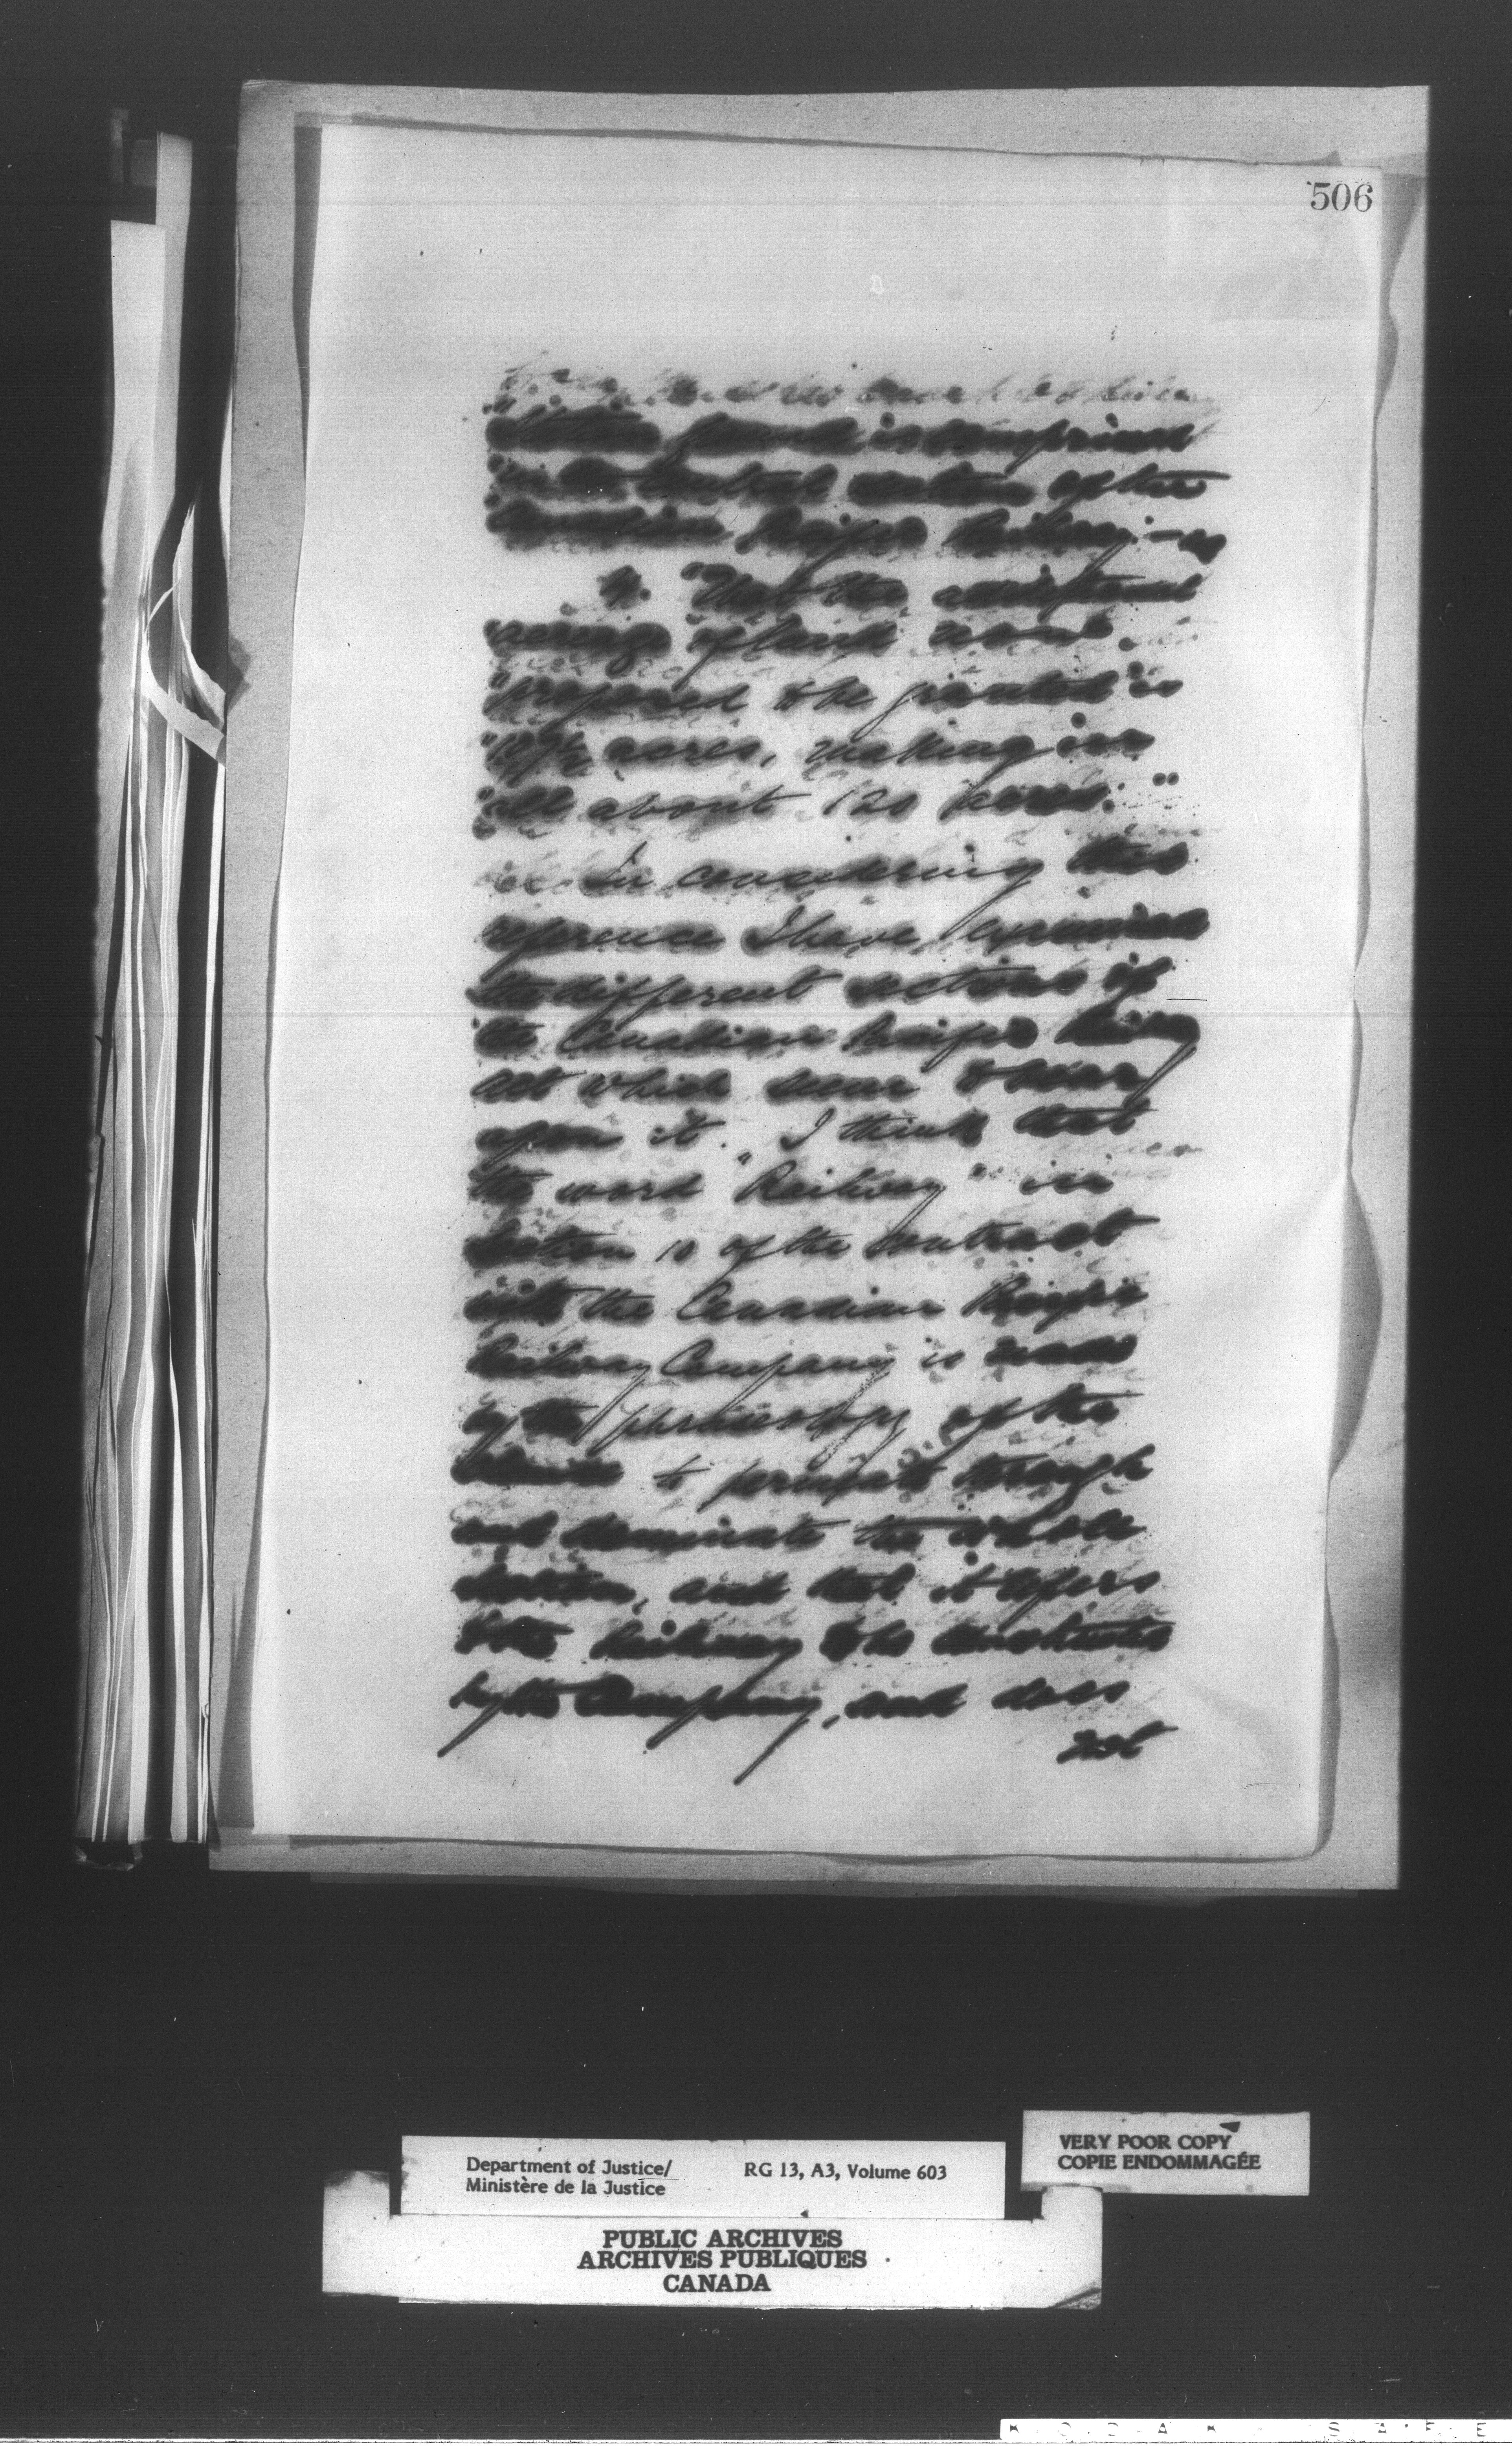 506
is comprised
in the Central section of the
Canadian Pacific Railway; - 
4. "That the additional
"acreage of land now
"proposed to be granted is
acres, making in
"all about 120 acres."
In considering this
reference I have examined
the different sections of
the Canadian Pacific Railway
act which seem to bear
upon it. I think that
the word "Railway" in
Section 10 of the contract
with the Canadian Pacific
Railway Company is made
by the phraseology of the
to permeate through
and dominate the whole
Section, and that it refers
to the Railway to be constructed
by the Company, and does
not
Department of Justice/
Ministère de la Justice
RG 13, A3, Volume 603
VERY POOR COPY
COPIE ENDOMMAGÉE
PUBLIC ARCHIVES
ARCHIVES PUBLIQUES
CANADA
KODAK SAFE